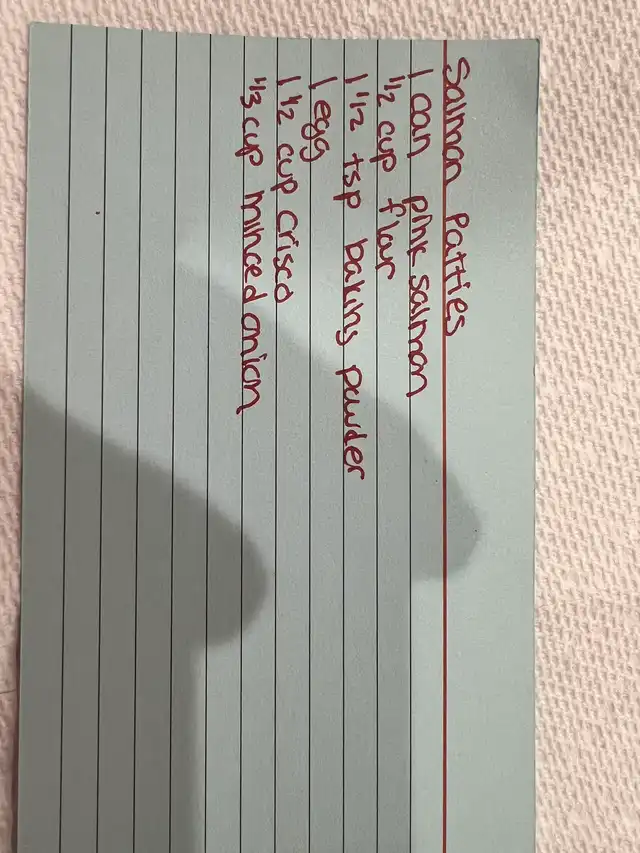 Salmon Patties
1 can pink salmon
1/2 cup flar
1 1/2 tsp baking powder
1 egg
1 1/2 cup crisco
1/3 cup minced onion